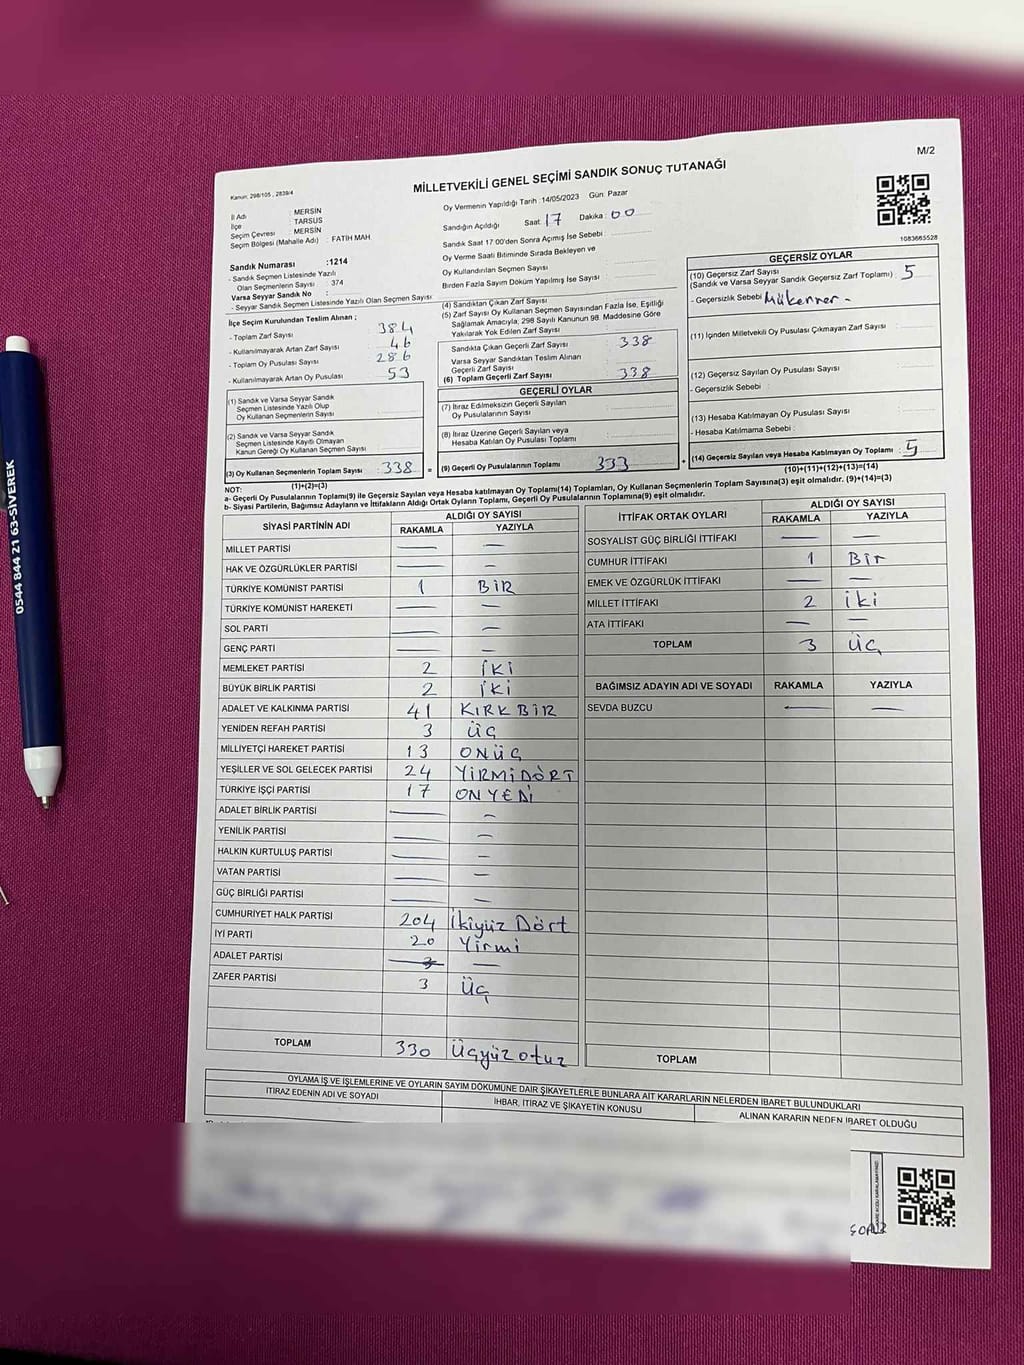 M/2
Kanun: 298/105 , 2839/4
MİLLETVEKİLİ GENEL SEÇİMİ SANDIK SONUÇ TUTANAĞI
İl Adı : MERSİN
İlçe : TARSUS
Seçim Çevresi : MERSİN
Seçim Bölgesi (Mahalle Adı) : FATİH MAH
Sandık Numarası :1214
- Sandık Seçmen Listesinde Yazılı
Olan Seçmenlerin Sayısı : 374
Varsa Seyyar Sandık No :
- Seyyar Sandık Seçmen Listesinde Yazılı Olan Seçmen Sayısı
İlçe Seçim Kurulundan Teslim Alınan ;
- Toplam Zarf Sayısı : 384
- Kullanılmayarak Artan Zarf Sayısı : 46
- Toplam Oy Pusulası Sayısı : 286
- Kullanılmayarak Artan Oy Pusulası : 53
(1) Sandık ve Varsa Seyyar Sandık
Seçmen Listesinde Yazılı Olup
Oy Kullanan Seçmenlerin Sayısı
(2) Sandık ve Varsa Seyyar Sandık
Seçmen Listesinde Kayıtlı Olmayan
Kanun Gereği Oy Kullanan Seçmen Sayısı
(3) Oy Kullanan Seçmenlerin Toplam Sayısı : 338 =
(1)+(2)=(3)
Oy Vermenin Yapıldığı Tarih :14/05/2023 Gün: Pazar
Sandığın Açıldığı Saat: 17 Dakika : 00
Sandık Saat 17 00'den Sonra Açımış İse Sebebi :
Oy Verme Saati Bitiminde Sırada Bekleyen ve
Oy Kullandırılan Seçmen Sayısı :
Birden Fazla Sayım Döküm Yapılmış İse Sayısı :
(4) Sandıktan Çıkan Zarf Sayısı :
(5) Zarf Sayısı Oy Kullanan Seçmen Sayısından Fazla İse, Eşitliği
Sağlamak Amacıyla; 298 Sayılı Kanunun 98. Maddesine Göre
Yakılarak Yok Edilen Zarf Sayısı :
Sandıkta Çıkan Geçerli Zarf Sayısı : 338
Varsa Seyyar Sandıktan Teslim Alınan
Geçerli Zarf Sayısı :
(6) Toplam Geçerli Zarf Sayısı : 338
GEÇERLİ OYLAR
(7) İtiraz Edilmeksizin Geçerli Sayılan
Oy Pusulalarının Sayısı :
(8) İtiraz Üzerine Geçerli Sayılan veya
Hesaba Katılan Oy Pusulası Toplamı :
(9) Geçerli Oy Pusulalarının Toplamı : 333 +
1083665528
GEÇERSİZ OYLAR
(10) Geçersiz Zarf Sayısı
(Sandık ve Varsa Seyyar Sandık Geçersiz Zarf Toplamı) : 5
- Geçersizlik Sebebi :
(11) İçinden Milletvekili Oy Pusulası Çıkmayan Zarf Sayısı :
(12) Geçersiz Sayılan Oy Pusulası Sayısı :
- Geçersizlik Sebebi :
(13) Hesaba Katılmayan Oy Pusulası Sayısı :
- Hesaba Katılmama Sebebi :
(14) Geçersiz Sayılan veya Hesaba Katılmayan Oy Toplamı : 5
(10)+(11)+(12)+(13)=(14)
NOT:
a- Geçerli Oy Pusulalarının Toplamı(9) ile Geçersiz Sayılan veya Hesaba katılmayan Oy Toplamı(14) Toplamları, Oy Kullanan Seçmenlerin Toplam Sayısına(3) eşit olmalıdır. (9)+(14)=(3)
b- Siyasi Partilerin, Bağımsız Adayların ve İttifakların Aldığı Ortak Oyların Toplamı, Geçerli Oy Pusulalarının Toplamına(9) eşit olmalıdır.
SİYASİ PARTİNİN ADI ALDIĞI OY SAYISI
RAKAMLA YAZIYLA
MİLLET PARTİSİ — —
HAK VE ÖZGÜRLÜKLER PARTİSİ — —
TÜRKİYE KOMÜNİST PARTİSİ 1 BİR
TÜRKİYE KOMÜNİST HAREKETİ — —
SOL PARTİ — —
GENÇ PARTİ — —
MEMLEKET PARTİSİ 2 İKİ
BÜYÜK BİRLİK PARTİSİ 2 İKİ
ADALET VE KALKINMA PARTİSİ 41 KIRK BİR
YENİDEN REFAH PARTİSİ 3 ÜÇ
MİLLİYETÇİ HAREKET PARTİSİ 13 ONÜÇ
YEŞİLLER VE SOL GELECEK PARTİSİ 24 YİRMİDÖRT
TÜRKİYE İŞÇİ PARTİSİ 17 ONYEDİ
ADALET BİRLİK PARTİSİ — —
YENİLİK PARTİSİ — —
HALKIN KURTULUŞ PARTİSİ — —
VATAN PARTİSİ — —
GÜÇ BİRLİĞİ PARTİSİ — —
CUMHURİYET HALK PARTİSİ 204 İkiyüz Dört
İYİ PARTİ 20 Yirmi
ADALET PARTİSİ 3 —
ZAFER PARTİSİ 3 Üç
TOPLAM 330 Üçyüzotuz
İTTİFAK ORTAK OYLARI ALDIĞI OY SAYISI
RAKAMLA YAZIYLA
SOSYALİST GÜÇ BİRLİĞİ İTTİFAKI — —
CUMHUR İTTİFAKI 1 Bir
EMEK VE ÖZGÜRLÜK İTTİFAKI — —
MİLLET İTTİFAKI 2 İki
ATA İTTİFAKI — —
TOPLAM 3 Üç
BAĞIMSIZ ADAYIN ADI VE SOYADI RAKAMLA YAZIYLA
SEVDA BUZCU — —
TOPLAM
OYLAMA İŞ VE İŞLEMLERİNE VE OYLARIN SAYIM DÖKÜMÜNE DAİR ŞİKAYETLERLE BUNLARA AİT KARARLARIN NELERDEN İBARET BULUNDUKLARI
İTİRAZ EDENİN ADI VE SOYADI İHBAR, İTİRAZ VE ŞİKAYETİN KONUSU ALINAN KARARIN NEDEN İBARET OLDUĞU
0544 844 21 63-SİVEREK